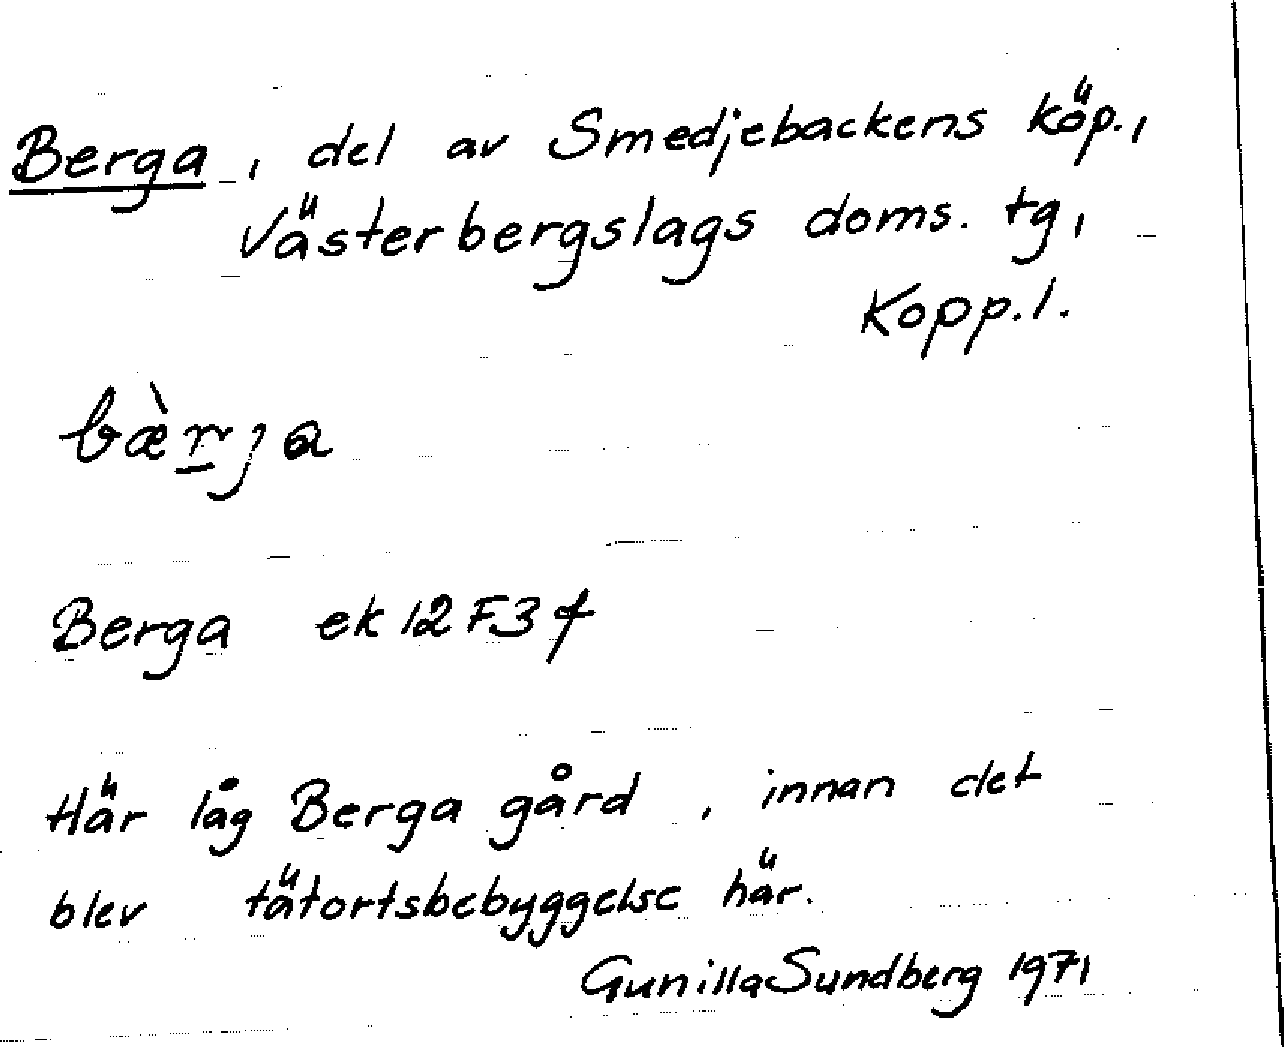 Berga, del av Smedjebackens köp.,
Västerbergslags doms. tg,
Kopp.l.
bæ̀r̲ja
Berga ek 12 F3 f
Här låg Berga gård, innan det
blev tätortsbebyggelse här.
Gunilla Sundberg 1971